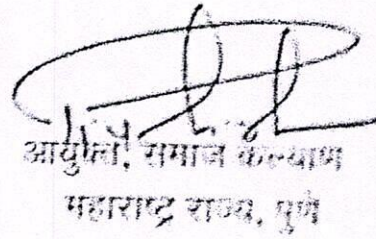 आयुक्त, समाज कल्याण
महाराष्ट्र राज्य, पुणे